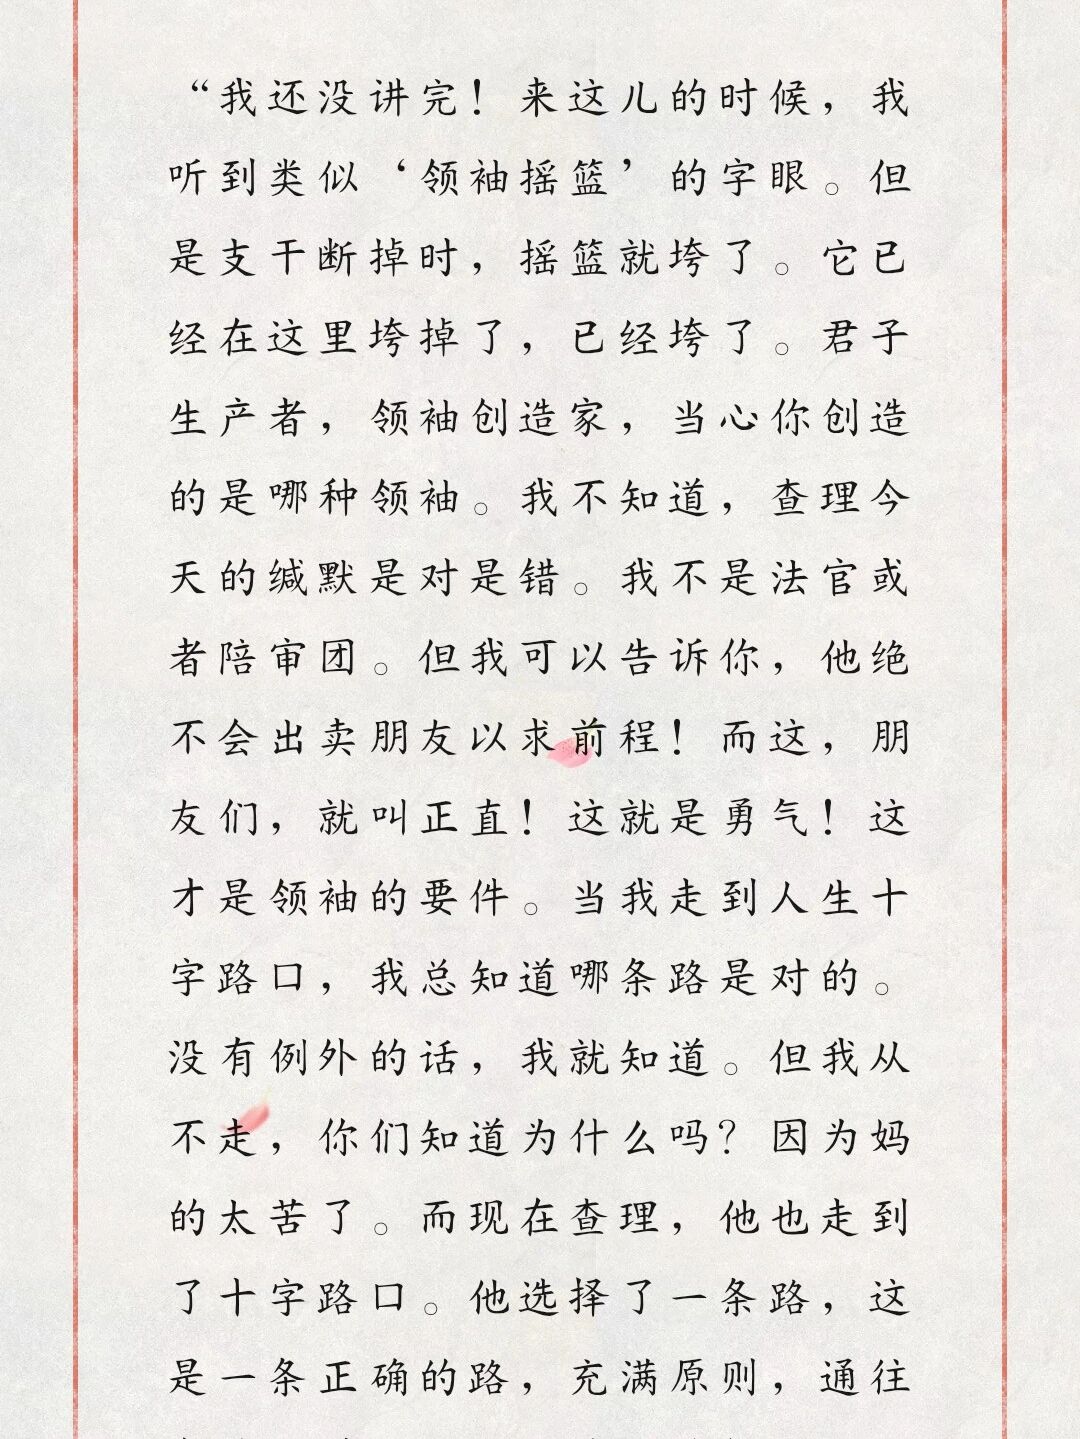 “我还没讲完！来这儿的时候，我
听到类似‘领袖摇篮’的字眼。但
是支干断掉时，摇篮就垮了。它已
经在这里垮掉了，已经垮了。君子
生产者，领袖创造家，当心你创造
的是哪种领袖。我不知道，查理今
天的缄默是对是错。我不是法官或
者陪审团。但我可以告诉你，他绝
不会出卖朋友以求前程！而这，朋
友们，就叫正直！这就是勇气！这
才是领袖的要件。当我走到人生十
字路口，我总知道哪条路是对的。
没有例外的话，我就知道。但我从
不走，你们知道为什么吗？因为妈
的太苦了。而现在查理，他也走到
了十字路口。他选择了一条路，这
是一条正确的路，充满原则，通往